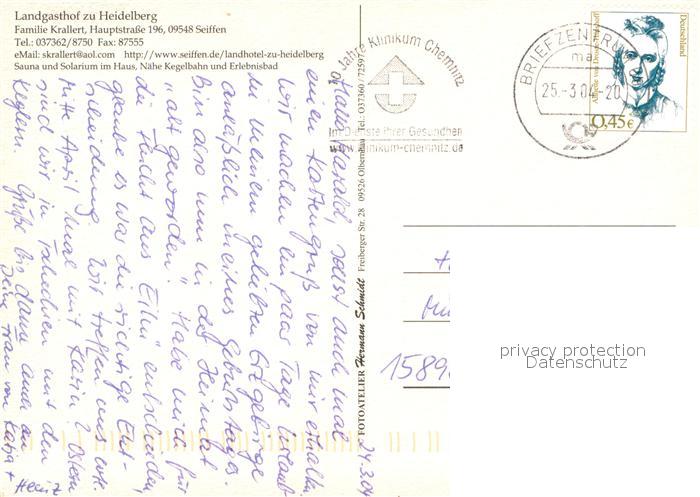 Landgasthof zu Heidelberg
Familie Krallert, Hauptstraße 196, 09548 Seiffen
Tel.: 037362/8750 Fax: 87555
eMail: skrallert@aol.com http://www.seiffen.de/landhotel-zu-heidelberg
Sauna und Solarium im Haus, Nähe Kegelbahn und Erlebnisbad
10 Jahre Klinikum Chemnitz
Im Dienste Ihrer Gesundheit
www.klinikum-chemnitz.de
BRIEFZENTRUM
ma
25.-3.04.-20
Deutschland
0,45€
24.3.04
Hallo Harald, sollst auch mal
einen Kartengruß von mir erhalten.
Wir machen ein paar Tage Urlaub
in meinem geliebten Erzgebirge
anläßlich meines Geburtstages.
Bin also nun in der Heimat
"alt geworden". Habe mich für
die Flucht aus Elm entschieden,
glaube es war die richtige Ent-
scheidung. Wir treffen uns evtl.
Mitte April mal mit Karin. Z. Ostern
sind wir in Tschechien mit den
Keglern. Grüße bis dann auch an
Deine Frau von Katja + Heinz
FOTOATELIER Hermann Schmidt Freiberger Str. 28 09526 Olbernhau Tel.: 037360 / 72597
1589
privacy protection
Datenschutz